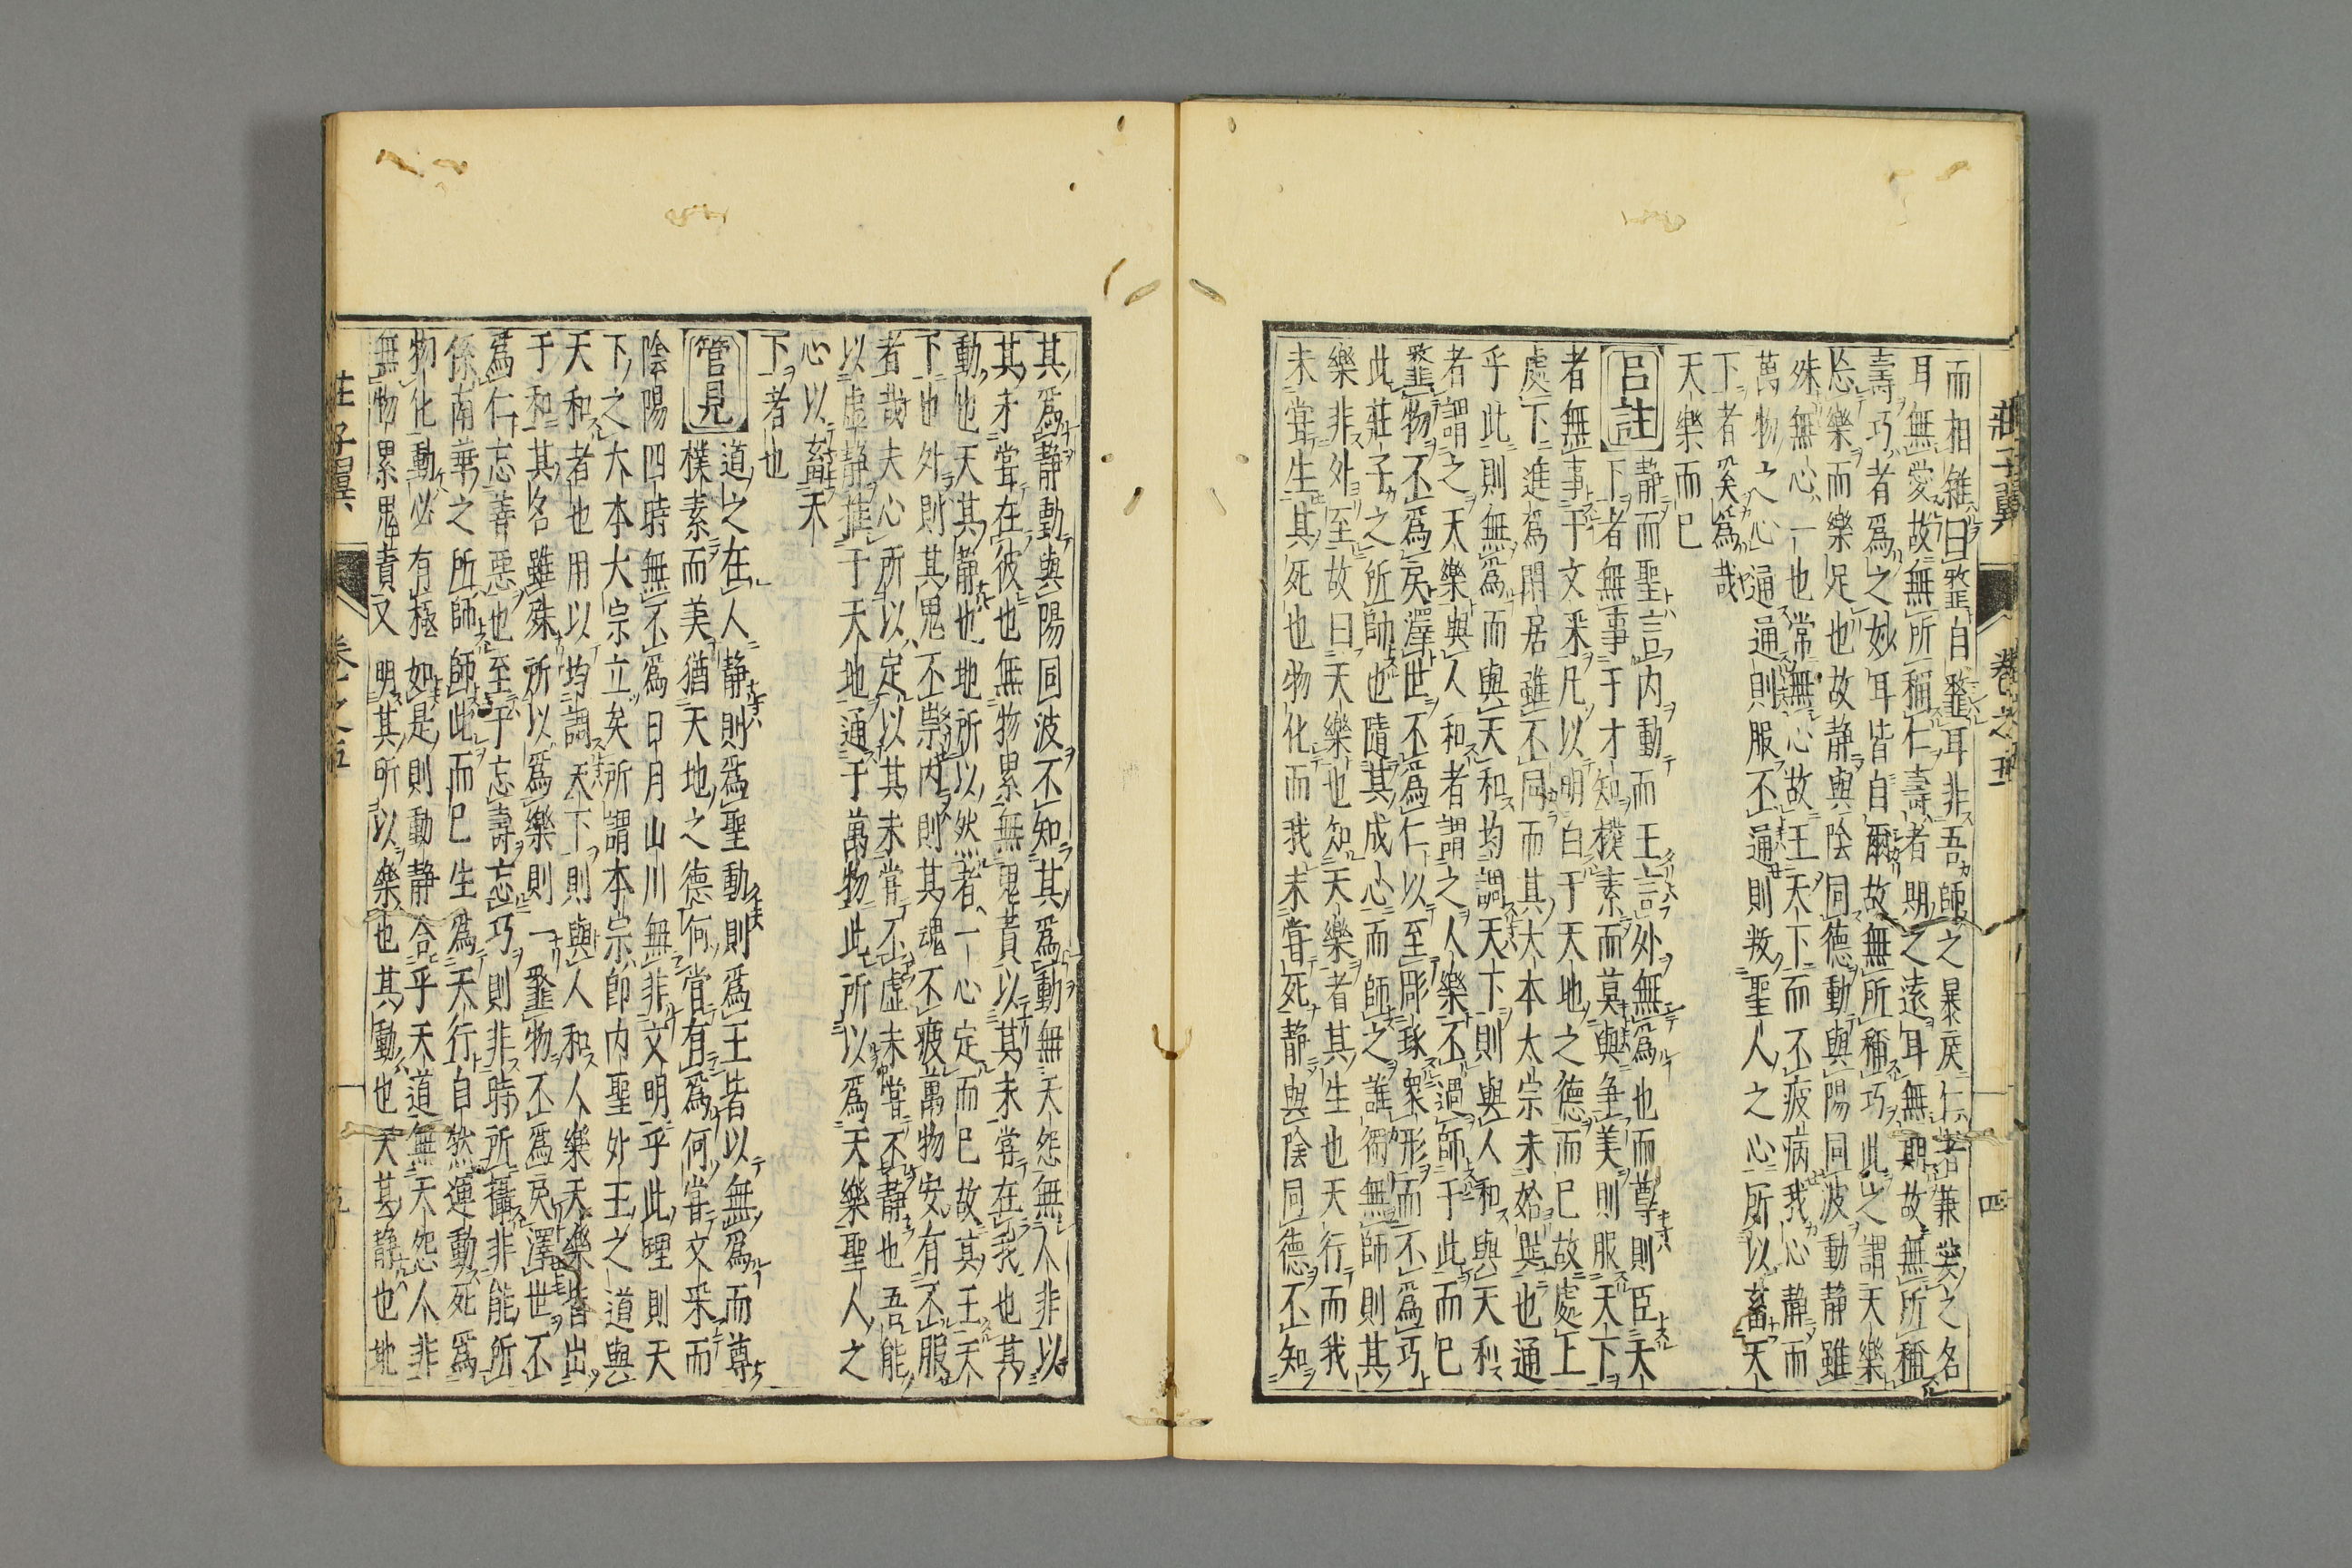 莊子翼 卷之五 四
而相雜曰䪠自䪠耳非吾師之暴戾仁者兼愛之名
耳無愛故無所稱仁壽者期之遠耳無期故無所稱
壽巧者爲之妙耳皆自爾故無所稱巧此之謂天樂
忘樂而樂足也故静與陰同德動與陽同波動静雖
殊無心一也常無心故王天下而不疲病我心静而
萬物之心通通則服不通則叛聖人之心所以畜天
下者奚爲哉
天樂而已
呂註
静而聖言内動而王言外無爲也而尊則臣天
下者無事于才知樸素而莫與爭美則服天下
者無事于文采凡以明白于天地之德而已故處上
處下進爲閒居雖不同而其大本大宗未始異也通
乎此則無爲而與天和均調天下則與人和與天和
者謂之天樂與人和者謂之人樂不過師于此而已
䪠物不爲戾澤世不爲仁以至彫琢衆形而不爲巧
此莊子之所師也隨其成心而師之誰獨無師則其
樂非外至故曰天樂也知天樂者其生也天行而我
未嘗生其死也物化而我未嘗死静與陰同德不知
其爲静動與陽同波不知其爲動無天怨無人非以
其未嘗在彼也無物累無鬼責以其未嘗在我也其
動也天其静也地所以然者一心定而已故其王天
下也外則其鬼不祟内則其魂不疲萬物安有不服
者哉夫心所以定以其未嘗不虛未嘗不静也吾能
以虛静推于天地通于萬物此所以爲天樂聖人之
心以畜天
下者也
管見
道之在人静則爲聖動則爲王皆以無爲而尊
樸素而美猶天地之德何嘗有爲何嘗文采而
陰陽四時無不爲日月山川無非文明乎此理則天
下之大本大宗立矣所謂本宗即内聖外王之道與
天和者也用以均調天下則與人和人樂天樂皆出
于和其名雖殊所以爲樂則一䪠物不爲戾澤世不
爲仁忘善惡也至于忘壽忘巧則非時所攝非能所
係南華之所師師此而已生爲天行自然運動死爲
物化動必有極如是則動静合乎天道無天怨人非
無物累鬼責又明其所以樂也其動也天其静也地
莊子翼 卷之五 五